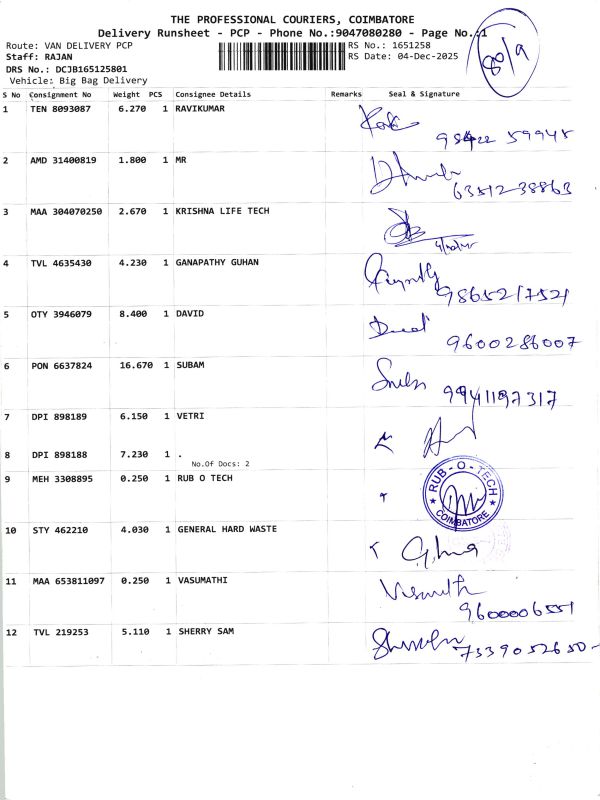 THE PROFESSIONAL COURIERS, COIMBATORE
Delivery Runsheet - PCP - Phone No.:9047080280 - Page No.:1
Route: VAN DELIVERY PCP
RS No.: 1651258
Staff: RAJAN
RS Date: 04-Dec-2025
DRS No.: DCJB165125801
Vehicle: Big Bag Delivery
80/9
S No Consignment No Weight PCS Consignee Details Remarks Seal & Signature
1 TEN 8093087 6.270 1 RAVIKUMAR
98422 59948
2 AMD 31400819 1.800 1 MR
63512-38863
3 MAA 304070250 2.670 1 KRISHNA LIFE TECH
4 TVL 4635430 4.230 1 GANAPATHY GUHAN
9865217521
5 OTY 3946079 8.400 1 DAVID
9600286007
6 PON 6637824 16.670 1 SUBAM
9941197317
7 DPI 898189 6.150 1 VETRI
8 DPI 898188 7.230 1 .
No.Of Docs: 2
9 MEH 3308895 0.250 1 RUB O TECH
RUB-O-TECH
COIMBATORE
10 STY 462210 4.030 1 GENERAL HARD WASTE
11 MAA 653811097 0.250 1 VASUMATHI
9600006551
12 TVL 219253 5.110 1 SHERRY SAM
7339052650-